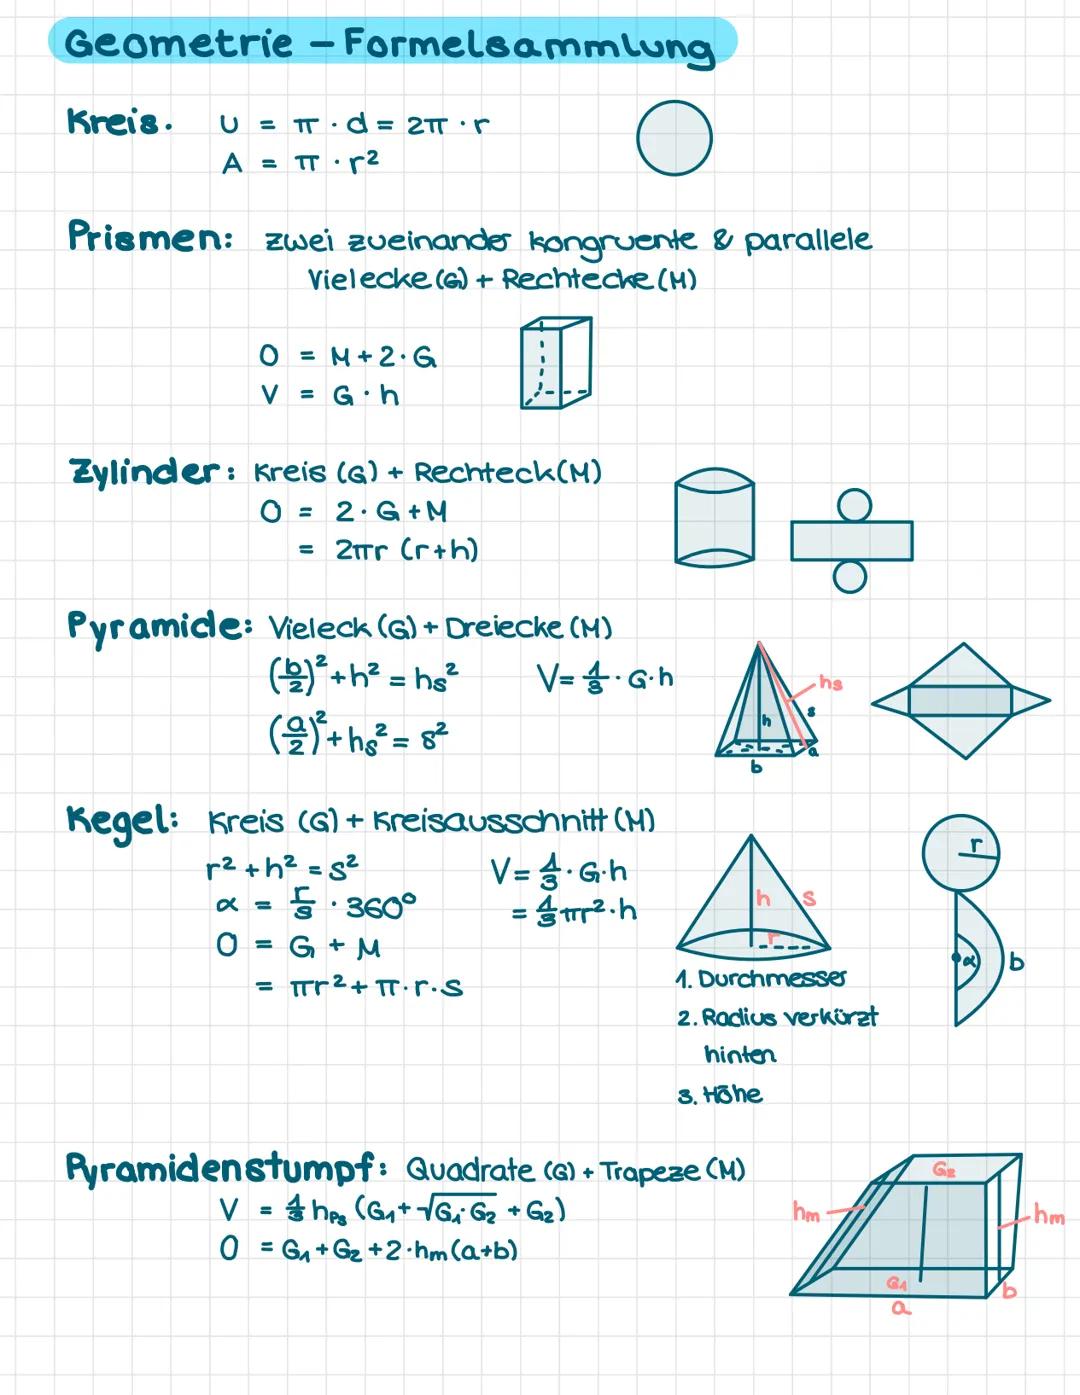 Geometrie – Formelsammlung
Kreis. U = π · d = 2π · r
A = π · r²
Prismen: zwei zueinander kongruente & parallele
Vielecke (G) + Rechtecke (M)
O = M + 2 · G
V = G · h
Zylinder: Kreis (G) + Rechteck (M)
O = 2 · G + M
= 2πr (r+h)
Pyramide: Vieleck (G) + Dreiecke (M)
(b/2)² + h² = hs² V = 1/3 · G · h
(a/2)² + hs² = s²
hs
s
h
a
b
Kegel: Kreis (G) + Kreisausschnitt (M)
r² + h² = s² V = 1/3 · G · h
α = r/s · 360° = 1/3 πr² · h
O = G + M
= πr² + π · r · s
h s
r
r
α b
1. Durchmesser
2. Radius verkürzt
hinten
3. Höhe
Pyramidenstumpf: Quadrate (G) + Trapeze (M)
V = 1/3 hPs (G1 + √G1 · G2 + G2)
O = G1 + G2 + 2 · hm (a+b)
G2
hm hm
G1 b
a